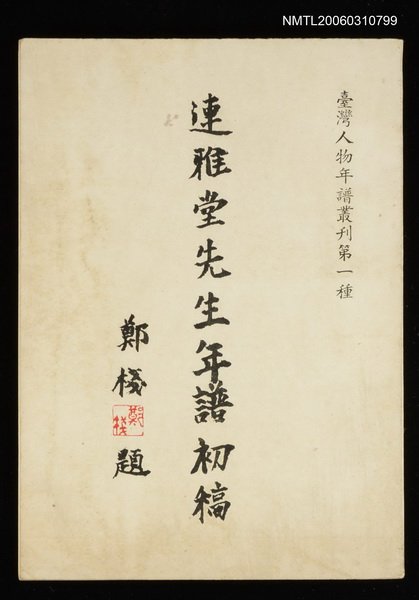 NMTL20060310799
臺灣人物年譜叢刊第一種
連雅堂先生年譜初稿
鄭棧題
鄭棧